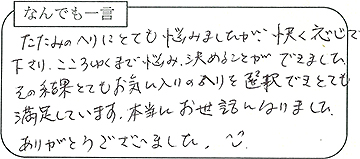 なんでも一言
たたみのヘリにとても悩みましたが、快く応じて
下さり、こころゆくまで悩み、決めることができました。
その結果とてもお気に入りのヘリを選択できとても
満足しています。本当にお世話になりました。
ありがとうございました。